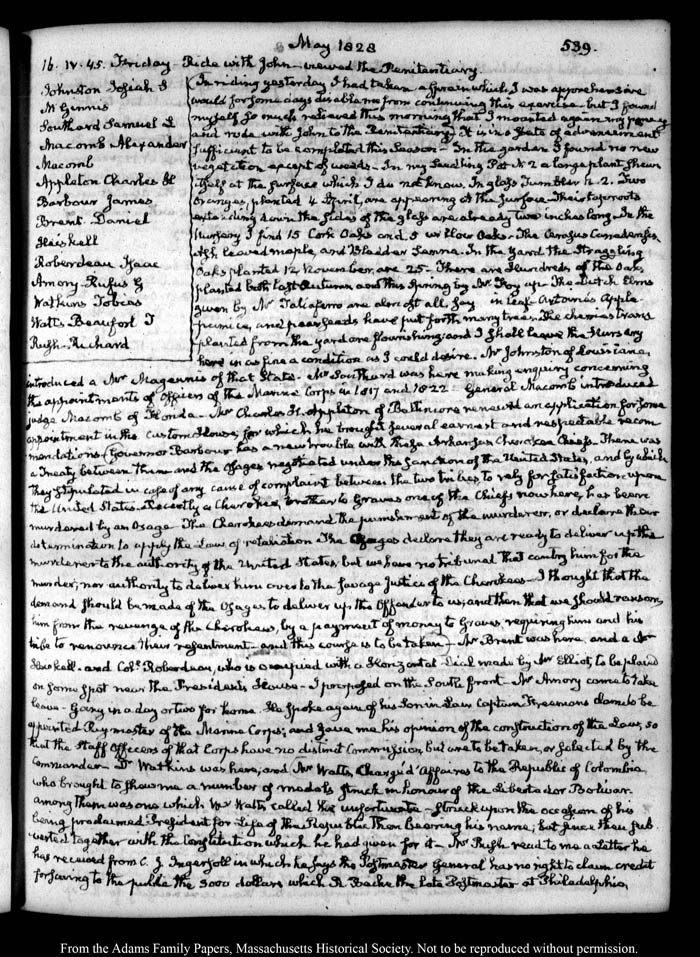 May 1828
539.
16. IV. 45. Friday. Ride with John - viewed the Penitentiary.
Johnston Josiah S
McGinnis
Southard Samuel L
Macomb Alexander
Macomb
Appleton Charles H
Barbour James
Brent Daniel
Heiskell
Roberdeau Isaac
Amory Rufus G
Watkins Tobias
Watts Beaufort T
Rush Richard
In riding yesterday I had taken a sprain which I was apprehensive
would for some days disable me from continuing this exercise - but I found
myself so much relieved this morning that I mounted again my poney
and rode with John to the Penitentiary. It is in a State of advancement
sufficient to be completed this Season - In the garden I found no new
vegetation except of weeds - In my Seedling Pot N. 2 a large plant shews
itself at the surface which I do not know. In glass Tumbler N. 2. Two
oranges, planted 4 April, are appearing at the surface - Their taproots
extending down the sides of the glass are already two inches long - In the
Nursery I find 15 Cork Oaks and 5 willow Oaks - The Cerasus Canadensis,
Ash leaved maple, and Bladder Senna. In the yard the straggling
Oaks planted 12 November, are 25 - There are hundreds of the Oaks
planted both last Autumn and this Spring by Mr Foy up - The Dutch Elms
given by Mr Taliaferro are almost all, say in leaf - Antoine's Apple
pumice, and pear seeds have put forth many trees. The cherries trans
planted from the yard are flourishing, and I shall leave the Nursery
here in as fine a condition as I could desire. Mr Johnston of Louisiana,
introduced a Mr Maginnis of that State. Mr Southard was here making enquiry concerning
the appointments of Officers of the Marine Corps in 1817 and 1822. General Macomb introduced
judge Macomb of Florida - Mr Charles H. Appleton of Baltimore renewed an application for some
appointment in the Custom House, for which he brought several earnest and respectable recom
mendations. Governor Barbour has a new trouble with these Arkansas Cherokee Chiefs. There was
a Treaty between them and the Osages negotiated under the sanction of the United States, and by which
they stipulated in case of any cause of complaint between the two tribes to rely for satisfaction upon
the United States. Recently a Cherokee, brother to Graves one of the Chiefs now here, has been
murdered by an Osage. The Cherokees demand the punishment of the murderer, or declare their
determination to apply the Law of retaliation. The Osages declare they are ready to deliver up the
murderer to the authority of the United States, but we have no tribunal that can try him for the
murder; nor authority to deliver him over to the savage Justice of the Cherokees - I thought that the
demand should be made of the Osages to deliver up the Offender to us; and then that we should ransom
him from the revenge of the Cherokees, by a payment of money to Graves, requiring him and his
tribe to renounce their resentment - and this course is to be taken - Mr Brent was here, and a Mr
Heiskell - and Coll. Roberdeau, who is occupied with a Horizontal Dial made by Mr Elliot, to be placed
on some spot near the Presidents House - I proposed on the South front. Mr Amory came to take
leave - Going in a day or two for home. He spoke again of his Son in Law Captain Freeman's claim to be
appointed Paymaster of the Marine Corps; and gave me his opinion of the construction of the Law, so
that the Staff Officers of that Corps have no distinct Commission, but are to be taken, or selected by the
Commander. Dr Watkins was here; and Mr Watts, Chargé d'Affaires to the Republic of Colombia
who brought to shew me a number of medals struck in honour of the Libertador Bolivar.
among them was one which Mr Watts called the unfortunate - struck upon the occasion of his
being proclaimed President for Life of the Republic then bearing his name; but since then sub
verted together with the Constitution which he had given for it - Mr Rush read to me a Letter he
has received from C. J. Ingersoll in which he says the Postmaster General has no right to claim credit
for saving to the public the 3000 dollars which R Bache the late Postmaster at Philadelphia,
From the Adams Family Papers, Massachusetts Historical Society. Not to be reproduced without permission.